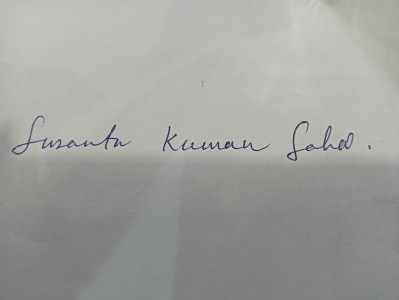 Susanta Kumar Saha.